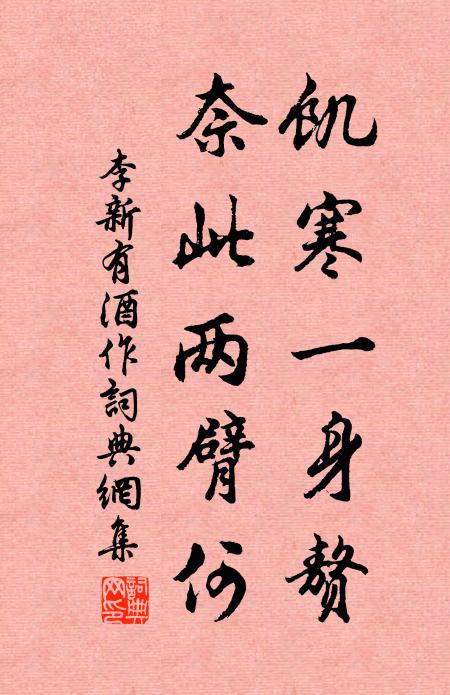 飢寒一身贅
奈此两臂何
李新有酒作詞典網集
詞典网印